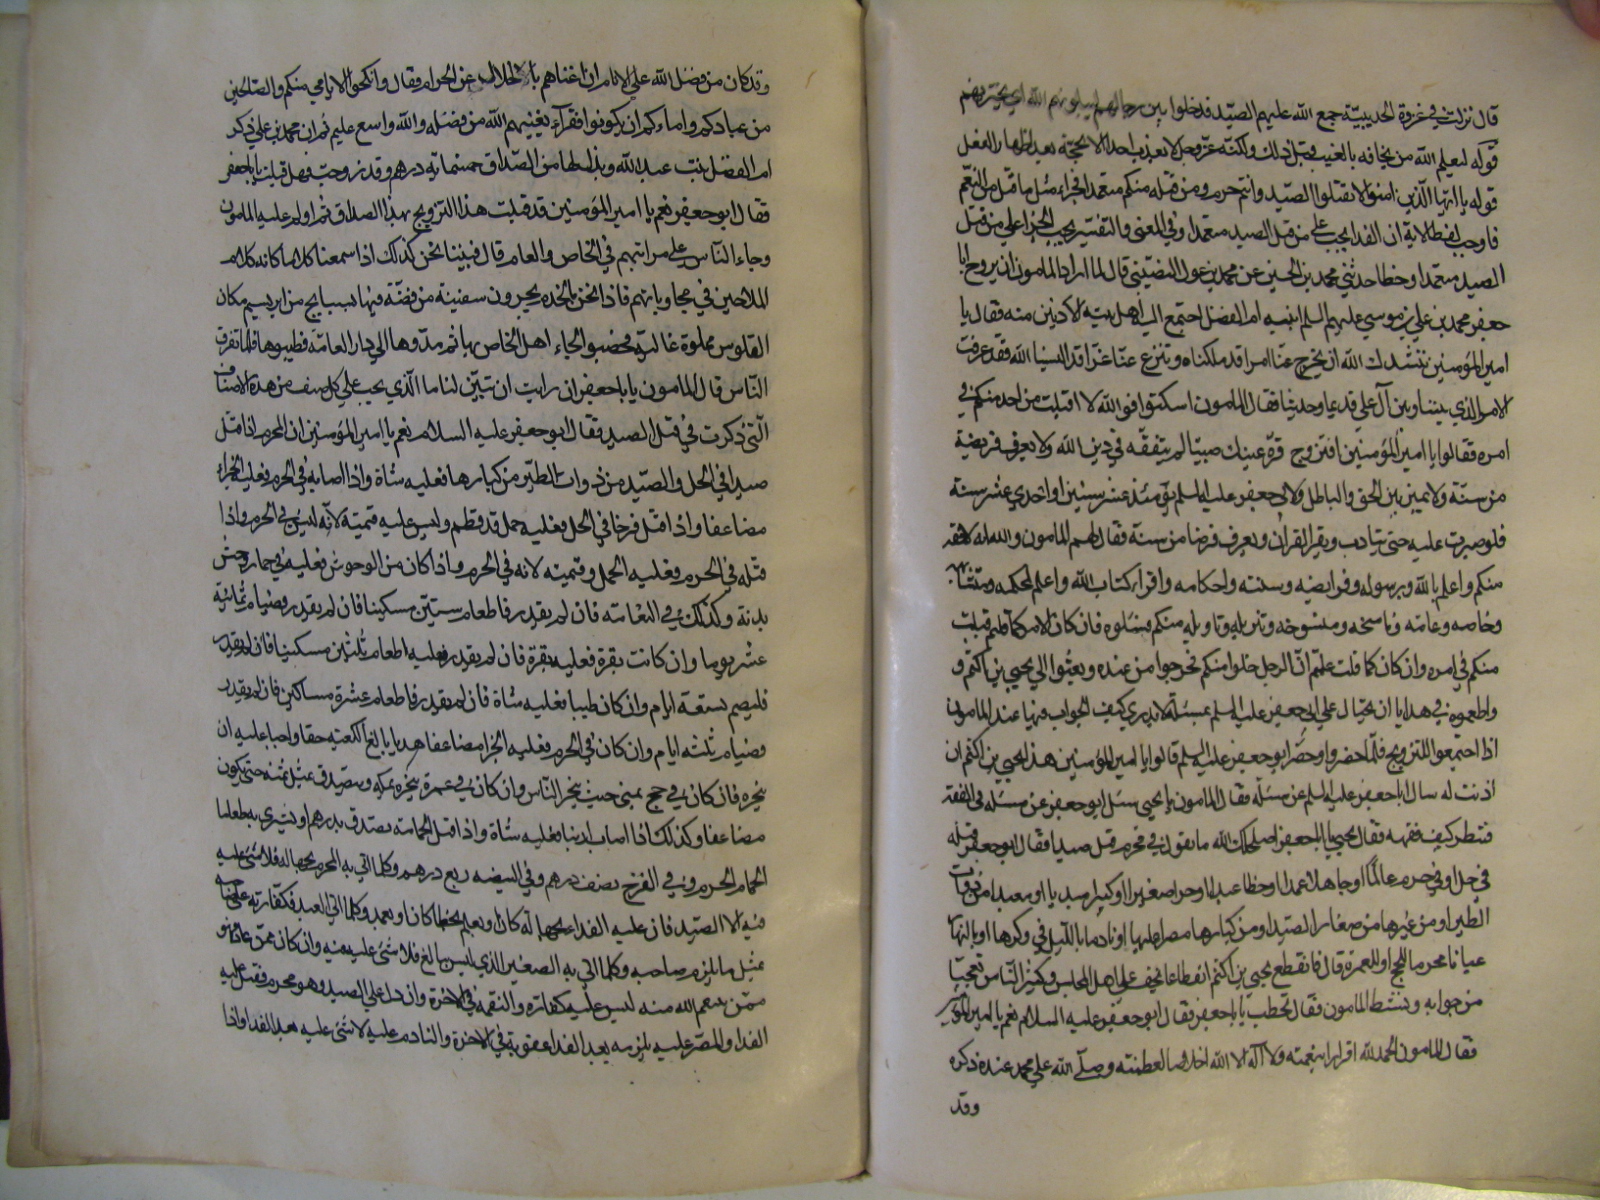 قال نزلت في غزوة الحديبية جمع الله عليهم الصيد فدخلوا بين رحالهم ليبلونهم الله اي يختبرنهم
قوله ليعلم الله من يخافه بالغيب وقبل ذلك ولكنه عز وجل لا يعذب احدا الا بحجة بعد اظهار الفعل
قوله يا ايها الذين امنوا لا تقتلوا الصيد وانتم حرم ومن قتله منكم متعمدا فجزاء مثل ما قتل من النعم
فاوجب لفظ الاية ان الفدا يجب على من قتل الصيد متعمدا وفي المعنى والتفسير يجب الجزا على من قتل
الصيد متعمدا وخطا حدثني محمد بن الحسين عن محمد بن عون النصيبي قال لما اراد المامون ان يزوج ابا
جعفر محمد بن علي بن موسي عليهم السلم ابنته ام الفضل اجتمع اليه اهل بيته الادنين منه فقال يا
امير المؤمنين ننشدك الله ان يخرج عنا امرا قد ملكناه وتنزع عنا عزا قد البسنا الله فقد عرفت
الامر الذي بيننا وبين آل علي قديما وحديثا فقال المامون اسكتوا فوالله لا اقبلت من احد منكم في
امره فقالوا يا امير المؤمنين افتزوج قرة عينك صبيا لم يتفقه في دين الله ولا يعرف فريضة
من سنة ولا يميز بين الحق والباطل ولابي جعفر عليه السلم يومئذ عشر سنين او احدي عشر سنة
فلو صبرت عليه حتى يتادب ويقرا القران ويعرف فرضا من سنة فقال لهم المامون والله انه لافقه
منكم واعلم بالله وبرسوله وفرايضه وسننه واحكامه واقرا لكتاب الله واعلم لمحكمه ومتشابهه
وخاصه وعامه وناسخه ومنسوخه وتنزيله وتاويله منكم فسئلوه فان كان الامر كما قلتم قبلت
منكم في امره وان كان كما قلت علمتم ان الرجل خلوا منكم فخرجوا من عنده وبعثوا الي يحيي بن اكثم و
واطعموه في هدايا ان يحتال علي ابي جعفر عليه السلم بمسئلة لا يدري كيف الجواب فيها عند المامون
اذا اجتمعوا للتزويج فلما حضروا وحضر ابو جعفر عليه السلم قالوا يا امير المؤمنين هذا يحيي بن اكثم ان
اذنت له سال ابا جعفر عليه السلم عن مسئلة فقال المامون يا يحيي سئل ابو جعفر عن مسئله في الفقه
فتنظر كيف فقهه فقال يحيي يا ابا جعفر اصلحك الله ما تقول في محرم قتل صيدا فقال ابو جعفر قتله
في حل او في حرم عالما او جاهلا عمدا او خطا عبدا او حرا صغيرا او كبيرا مبديا او معيدا من ذوات
الطير او من غيرها من صغار الصيد او من كبارها مصرا عليها او نادما بالليل في وكرها او بالنهار
عيانا محرما للحج او للعمرة قال فانقطع يحيي بن اكثم انقطاعا لم يخف علي اهل المجلس وكثر الناس تعجبا
من جوابه ونشط المامون فقال تخطب يا ابا جعفر فقال ابو جعفر عليه السلام نعم يا امير المؤمنين
فقال المامون الحمد لله اقرارا بنعمته ولا اله الا الله اخلاصا لعظمته وصلي الله علي محمد عند ذكره
وقد
وقد كان من فضل الله علي الانام ان اغناهم بالحلال عن الحرام وقال وانكحوا الايامي منكم والصالحين
من عبادكم وامائكم ان يكونوا فقراء يغنيهم الله من فضله والله واسع عليم ثم ان محمد بن علي ذكر
ام الفضل بنت عبد الله وبذل لها من الصداق خمسمائة درهم وقد زوجت فهل قبلت يا ابا جعفر
فقال ابو جعفر نعم يا امير المؤمنين قد قبلت هذا التزويج بهذا الصداق ثم اولم عليه المامون
وجاء الناس علي مراتبهم في الخاص والعام قال فبينا نحن كذلك اذا سمعنا كلاما كانه كلام
الملاحين في مجاوباتهم فاذا نحن بالخدم يجرون سفينة من فضة فيها نسايج من ابريسم مكان
القلوس مملوة غالية فخضبوا لحاء اهل الخاص بها ثم مدوها الي دار العامة فطيبوها فلما تفرق
الناس قال المامون يا ابا جعفر ان رايت ان تبين لنا ما الذي يجب علي كل صنف من هذه الاصناف
التي ذكرت في قتل الصيد فقال ابو جعفر عليه السلام نعم يا امير المؤمنين ان المحرم اذا قتل
صيدا في الحل والصيد من ذوات الطير من كبارها فعليه شاة واذا اصابه في الحرم فعليه الجزاء
مضاعفا واذا قتل فرخا في الحل فعليه حمل قد فطم وليس عليه قيمته لانه ليس في الحرم واذا
قتله في الحرم فعليه الحمل وقيمته لانه في الحرم واذا كان من الوحوش فعليه في حمار وحش
بدنة وكذلك في النعامة فان لم يقدر فاطعام ستين مسكينا فان لم يقدر فصيام ثمانية
عشر يوما وان كانت بقرة فعليه بقرة فان لم يقدر فعليه اطعام ثلثين مسكينا فان لم يقدر
فليصم تسعة ايام وان كان ظبيا فعليه شاة فان لم يقدر فاطعام عشرة مساكين فان لم يقدر
فصيام ثلثة ايام وان كان في الحرم فعليه الجزا مضاعفا هديا بالغ الكعبة حقا واجبا عليه ان
ينحره فان كان في حج بمني حيث ينحر الناس وان كان في عمرة ينحره بمكة ويتصدق بمثل ثمنه حتى يكون
مضاعفا وكذلك اذا اصاب ارنبا فعليه شاة واذا قتل الحمامة تصدق بدرهم او يشتري به طعاما
لحمام الحرم وفي الفرخ نصف درهم وفي البيضه ربع درهم وكلما اتي به المحرم بجهالة فلا شئ عليه
فيه الا الصيد فان عليه الفداء بجهالة كان او بعلم بخطا كان او بعمد وكلما اتي العبد فكفارته علي صاحبه
بمثل ما يلزم صاحبه وكلما اتي به الصغير الذي ليس ببالغ فلا شئ عليه فيه وان كان ممن عاد فهو
ممن ينتقم الله منه ليس عليه كفاره والنقمه في الاخرة وان دل علي الصيد وهو محرم فقتل عليه
الفدا والمصر عليه يلزمه بعد الفدا عقوبة في الاخرة والنادم عليه لا شئ عليه بعد الفدا واذا